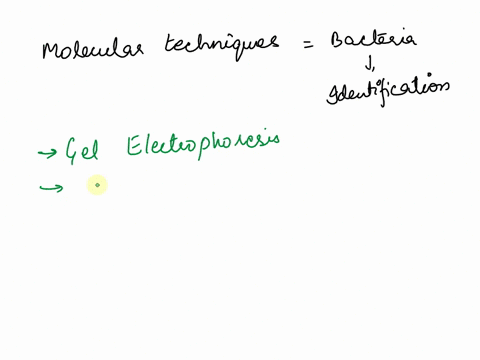 Molecular techniques = Bacteria
↓
Identification
→ Gel Electrophoresis
→